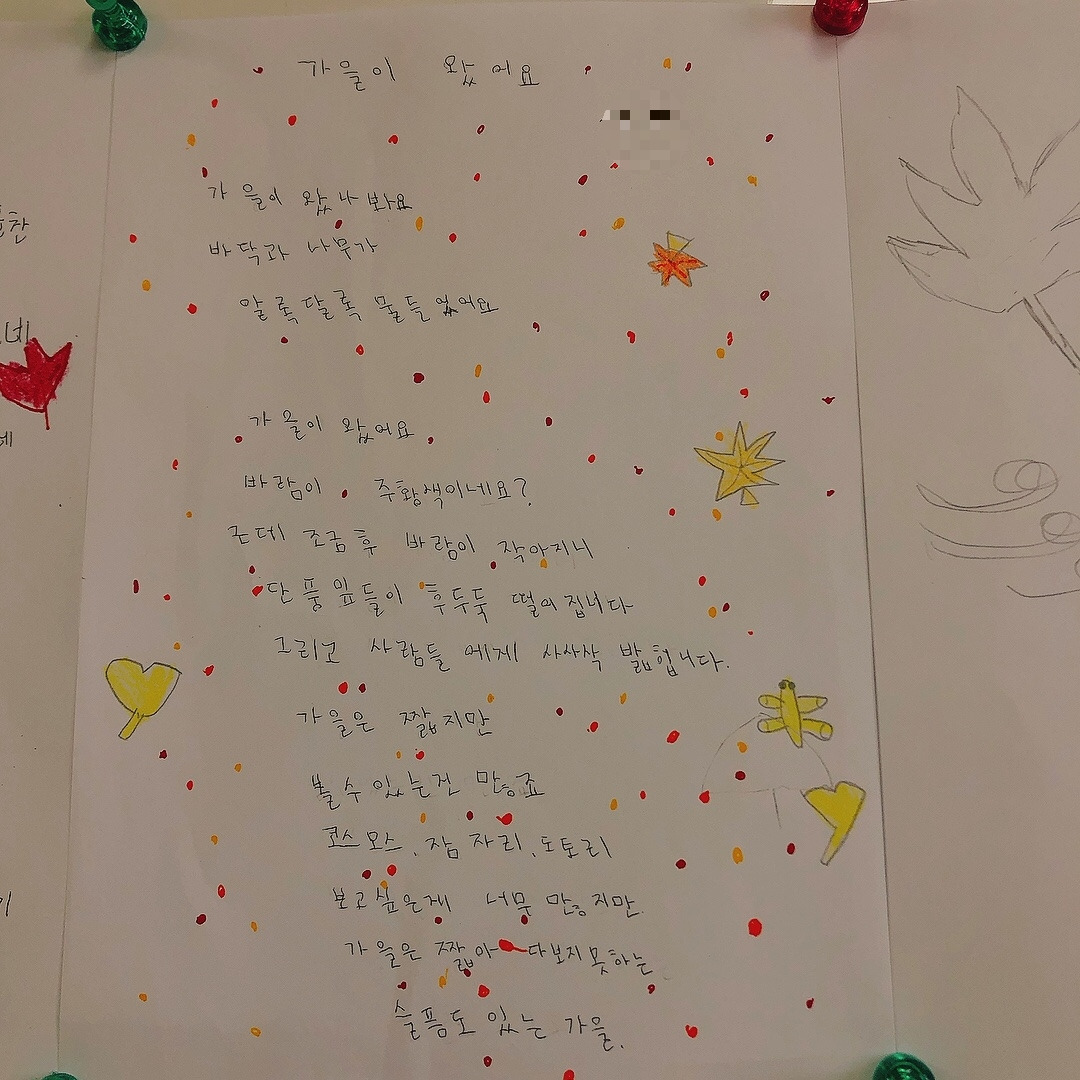 가을이 왔어요
가을이 왔나봐요
바닥과 나무가
알록달록 물들었어요
가을이 왔어요
바람이 주황색이네요?
조금후 바람이 작아지니
단풍잎들이 후두둑 떨어집니다
그리고 사람들에게 사사삭 밟힙니다.
가을은 짧지만
볼수있는건 많죠
코스모스, 잠자리, 도토리
보고싶은게 너무 많지만
가을은 짧아 다보지못하는
슬픔도 있는 가을.
찬
네